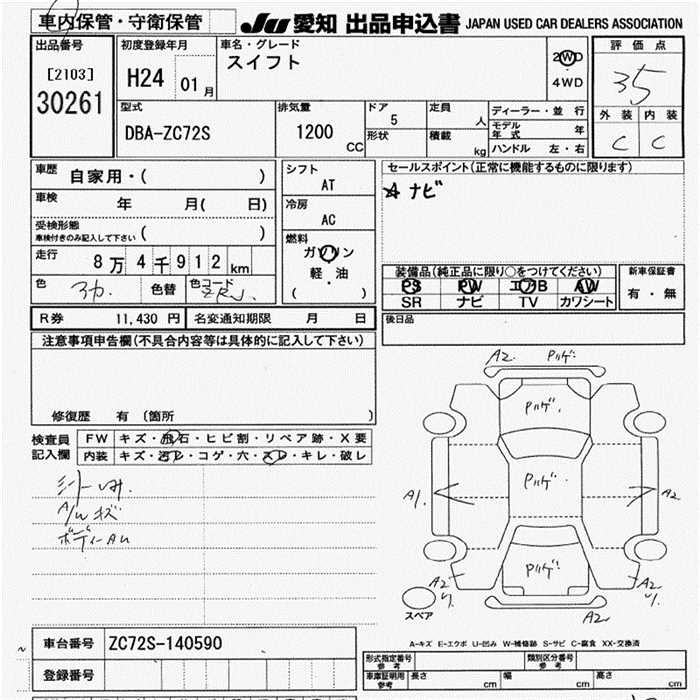 車内保管・守衛保管
JU 愛知 出品申込書 JAPAN USED CAR DEALERS ASSOCIATION
出品番号
[2103]
30261
初度登録年月
H24 01 月
車名・グレード
スイフト
2WD
4WD
評価点
3.5
外装 内装
C C
型式
DBA-ZC72S
排気量
1200 CC
ドア
5
形状
定員
人
積載
kg
ディーラー・並行
モデル年式 年
ハンドル 左・右
車歴
自家用・( )
車検
年 月( 日)
受検形態
車検付きのみ記入して下さい ( )
走行
8万4千912 km
色
色替
色コード
ZRJ
シフト
AT
冷房
AC
燃料
ガソリン
軽・油
( )
セールスポイント(正常に機能するものに限ります)
ナビ
装備品(純正品に限り○をつけてください)
PS PW エアB AW
SR ナビ TV カワシート
新車保証書
有・無
後日品
R券 11,430 円 名変通知期限 月 日
注意事項申告欄(不具合内容等は具体的に記入して下さい)
修復歴 有 (箇所 )
検査員
記入欄
FW キズ・飛石・ヒビ割・リペア跡・X要
内装 キズ・汚レ・コゲ・穴・スレ・キレ・破レ
A/W キズ
A2
A1
A2
A2
A2
A2
スペア
A-キズ E-エクボ U-凹み W-補修跡 S-サビ C-腐食 XX-交換済
車台番号 ZC72S-140590
登録番号
形式指定番号
参考
類別区分番号
参考
車庫証明用
参考
長さ cm
幅 cm
高さ cm